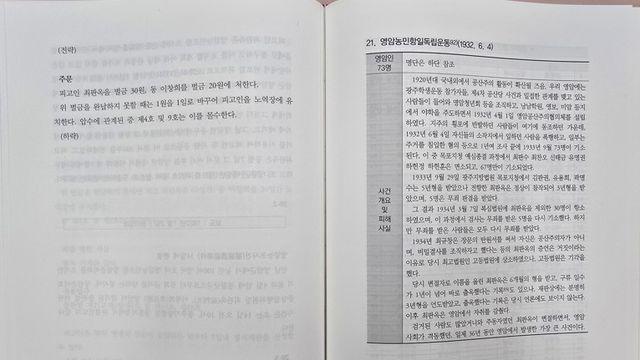 (전략)
주문
피고인 최판옥을 벌금 30원, 동 이창희를 벌금 20원에 처한다.
위 벌금을 완납하지 못할 때는 1원을 1일로 바꾸어 피고인을 노역장에 유
치한다. 압수에 관계된 증 제4호 및 9호는 이를 몰수한다.
(하략)
21. 영암농민항일독립운동(1932, 6, 4)
영암인
73명
명단은 하단 참조
사건
개요
및
피해
사실
1920년대 국내외에서 공산주의 활동이 확산될 즈음, 우리 영암에는
광주학생운동 참가자들, 제4차 공산당 사건과 밀접한 관계를 맺고 있는
사람들이 들어와 영암청년회 등을 조직하고, 남남학원, 영보, 미암 등지
에서 야학을 주도하면서 1932년 4월 1일 영암공산주의협의체를 설립
하였다. 지주의 횡포에 반발하던 사람들이 여기에 동조하던 가운데,
1932년 6월 4일 자신들의 소작지에서 일하던 사람을 폭행하고, 일부는
주거를 침입한 혐의 등으로 1년여 조사 끝에 1933년 9월 73명이 기소
된다. 이 중 목포지청 예심종결 과정에서 최판수 최창오 신태금 유명권
하헌정 하헌훈은 면소되고, 67명만이 기소되었다.
1933년 9월 29일 광주지방법원 목포지청에서 김판권, 유용희, 곽명
수는 5년형을 받았으나 전향한 최판옥은 정상이 참작되어 3년형을 받
았으며, 5명은 무죄 판결을 받았다.
그 결과 1934년 3월 7일 복심법원에 최판옥을 제외한 30명이 항소
하였으며, 이 과정에서 검사는 무죄를 받은 5명을 다시 기소했다. 하지
만 무죄를 받은 사람들은 모두 다시 무죄를 받았다.
1934년 최규창은 장문의 탄원서를 써서 자신은 공산주의자가 아니
며, 비밀결사를 조직하자고 했다는 등의 최판옥의 증언은 거짓이라는
이유로 당시 최고법원인 고등법원에 상소하였으나, 고등법원은 기각을
했다.
당시 변절자로 이름을 올린 최판옥은 6개월의 형을 받고, 구류 일수
가 1년이 넘어 바로 출옥했다는 기록마도 있으나, 재판상에는 분명히
3년형을 언도받았고, 출옥했다는 기록은 당시 언론에도 보이지 않는다.
이후 최판옥은 영암에서 자취를 감췄다.
검거된 사람도 많았거니와 주동자였던 최판옥이 변절하면서, 영암
사회가 격동했던, 일제 36년 동안 영암에서 발생한 가장 큰 사건이다.